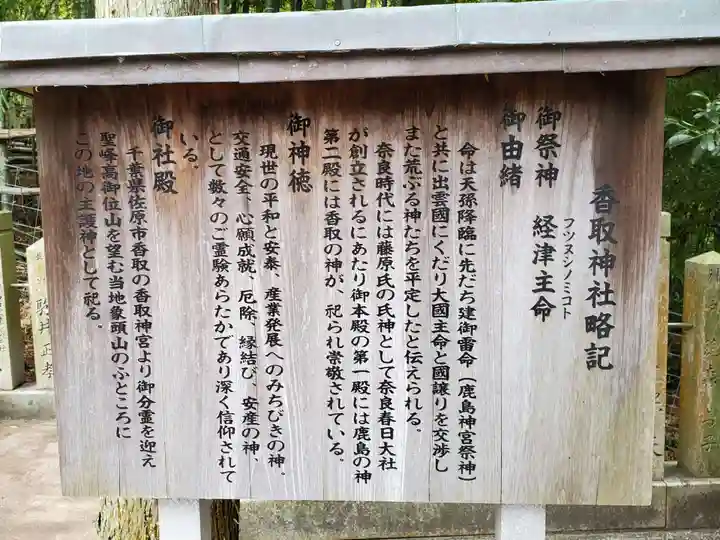 香取神社略記
御祭神 経津主命
フツヌシノミコト
御由緒
命は天孫降臨に先だち建御雷命(鹿島神宮祭神)
と共に出雲國にくだり大國主命と國譲りを交渉し
また荒ぶる神たちを平定したと伝えられる。
奈良時代には藤原氏の氏神として奈良春日大社
が創立されるにあたり御本殿の第一殿には鹿島の神
第二殿には香取の神が、祀られ崇敬されている。
御神徳
現世の平和と安泰、産業発展へのみちびきの神。
交通安全、心願成就、厄除、縁結び、安産の神、
として数々のご霊験あらたかであり深く信仰されて
いる。
御社殿
千葉県佐原市香取の香取神宮より御分霊を迎え
聖峰高御位山を望む当地象頭山のふところに
この地の主護神として祀る。